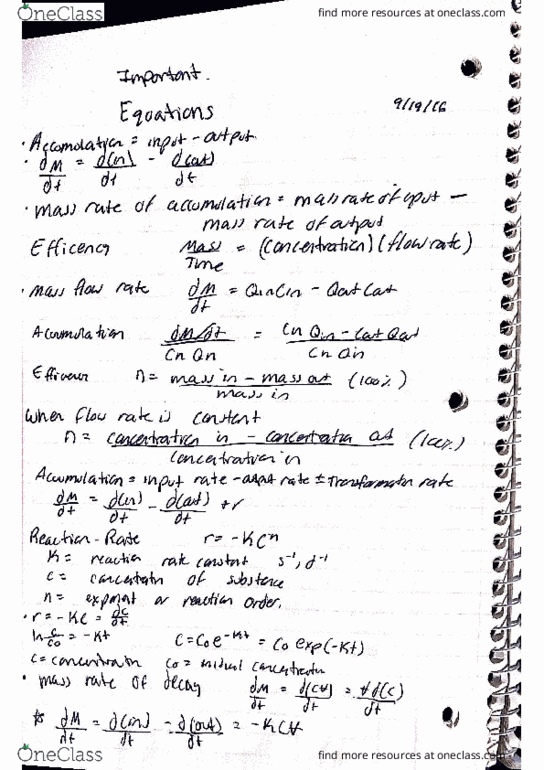 OneClass
find more resources at oneclass.com
Important.
Equations
9/19/16
· Accomolation = input - output.
· dM/dt = d(in)/dt - d(out)/dt
· mass rate of accumulation = mass rate of input -
mass rate of output
Efficency Mass/Time = (concentration)(flow rate)
· mass flow rate dM/dt = QinCin - Qout Cout
Accumulation dM/dt / Cn Qn = Cn Qin - Cout Qout / Cn Qin
n = mass in - mass out / mass in (100%)
when flow rate is constant
n = concentration in - concentration out / concentration in (100%)
Accumulation = input rate - output rate ± Transformation rate
dM/dt = d(in)/dt - d(out)/dt + r
Reaction - Rate r = -KCⁿ
K = reaction rate constant s⁻¹, d⁻¹
C = concentratn of substance
n = exponent or reaction order.
· r = -KC = dC/dt
ln C/Co = -Kt C = Co e^-Kt = Co exp(-Kt)
C = concentration Co = initial concentration
· mass rate of decay dM/dt = d(C∀)/dt = ∀d(C)/dt
dM/dt = d(in)/dt - d(out)/dt = -KC∀
OneClass
find more resources at oneclass.com